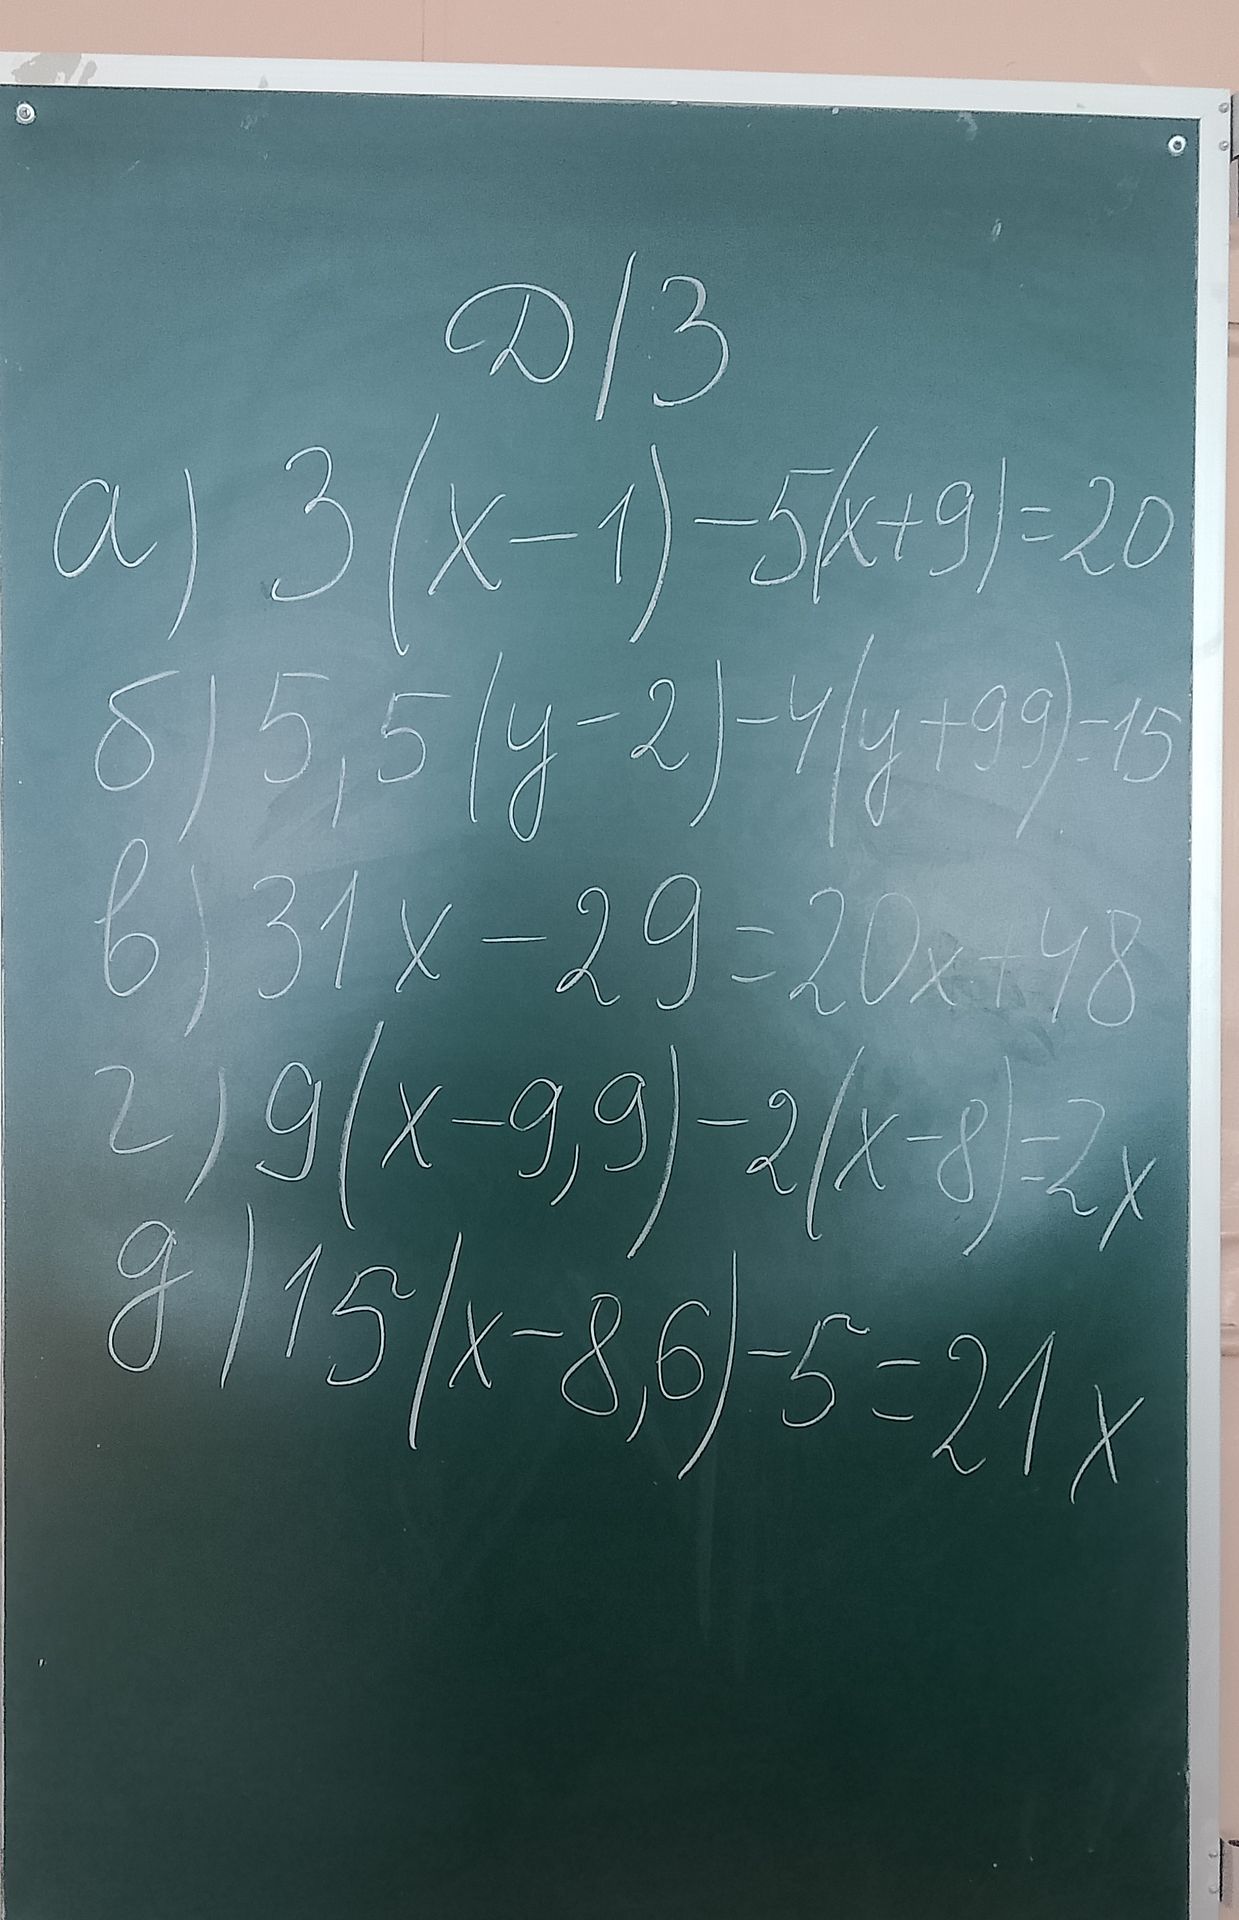 Д/З
а) 3(x-1)-5(x+9)=20
б) 5,5(y-2)-4(y+99)=15
в) 31x-29=20x+48
г) 9(x-9,9)-2(x-8)=2x
д) 15(x-8,6)-5=21x